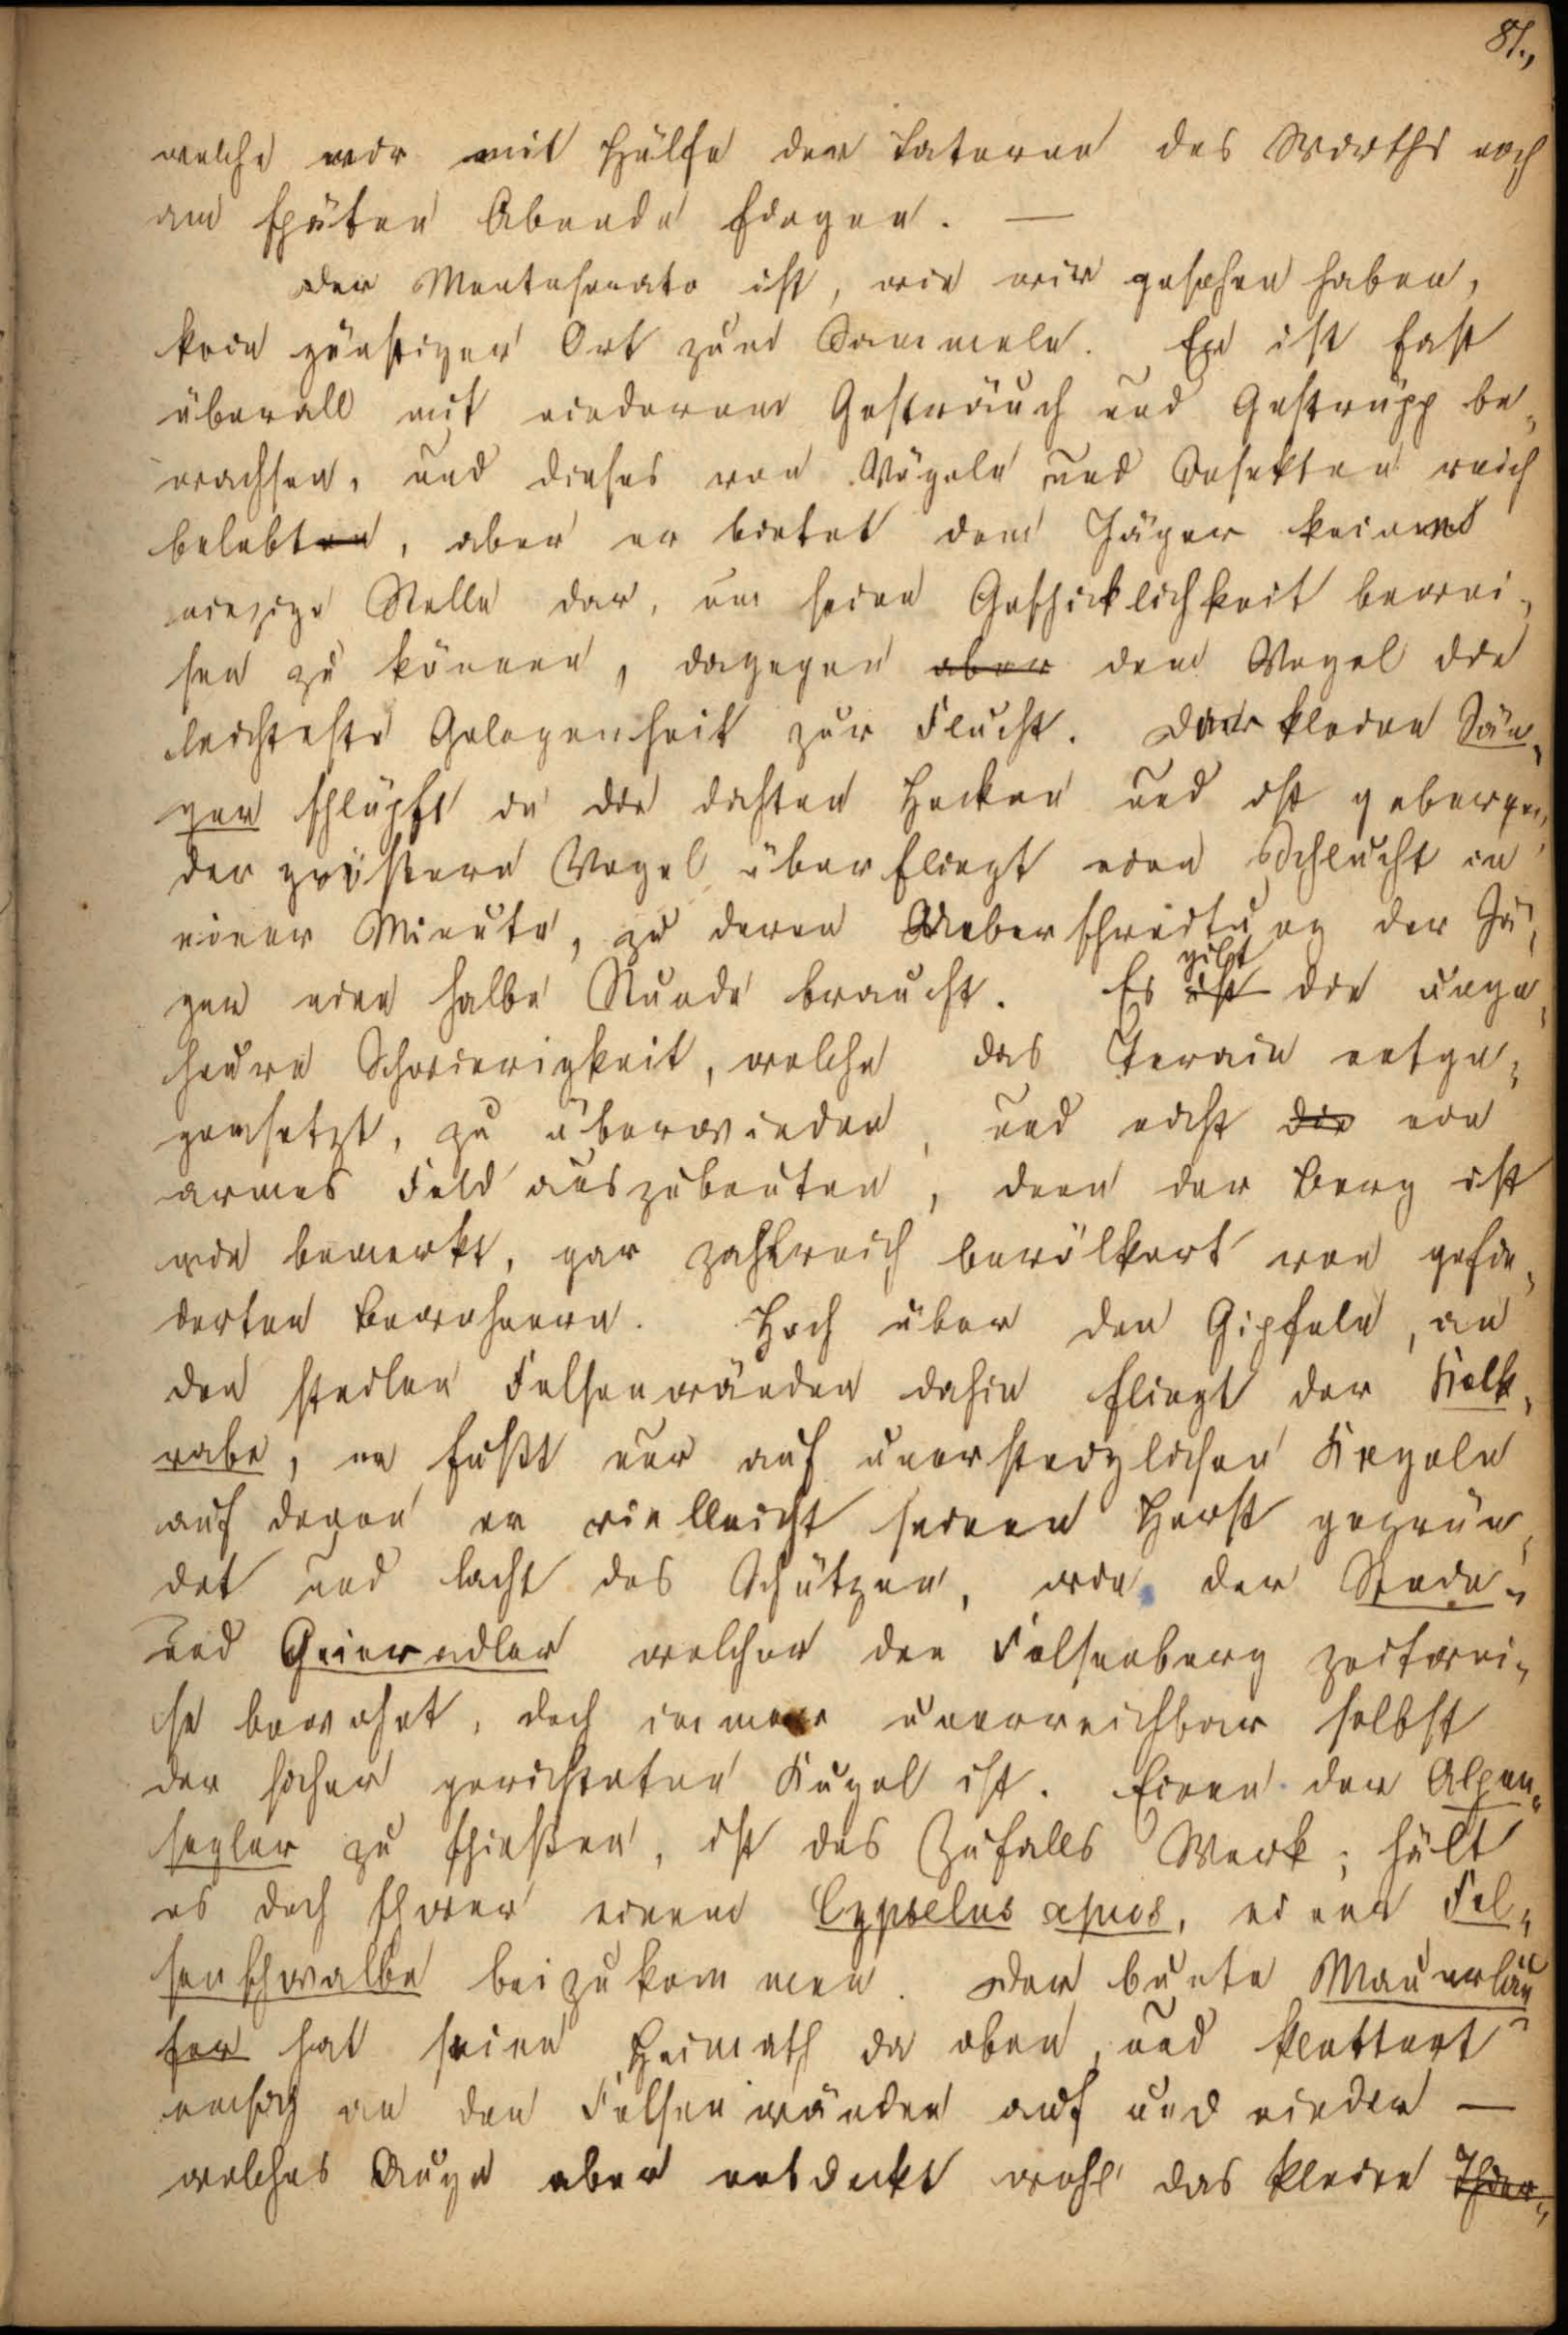 81.,
welche wir mit Hülfe der Laterne des Wirths noch
am späten Abende fingen. —
Der Montserrato ist, wie wir gesehen haben,
kein günstiger Ort zum Sammeln. Er ist fast
überall mit niederem Gesträuch und Gestrüpp be„
wachsen, und dieses von Vögeln und Insekten reich
belebten, aber er bietet dem Jäger keine
einzige Stelle dar, um seine Geschicklichkeit bewei„
sen zu können, dagegen aber dem Vogel die
leichteste Gelegenheit zur Flucht. Der kleine Sän„
ger schlüpft in die dichten Hecken und ist geborgen,
der größere Vogel überfliegt eine Schlucht in
einer Minute, zu deren Ueberschreitung der Jä„
ger eine halbe Stunde braucht. Es ist gibt die unge„
heure Schwierigkeit, welche das Terain entge„
gensetzt, zu überwinden, und nicht die ein
armes Feld auszubeuten, denn der Berg ist
wie bemerkt, gar zahlreich bevölkert von gefie„
derten Bewohnern. Hoch über den Gipfeln, an
den steilen Felsenwänden dahin fliegt der Kolk„
rabe, er fußt nur auf unersteiglichen Kegeln
auf denen er vielleicht seinen Horst gegrün„
det und lacht des Schützen, wie der Stein„
und Geieradler welcher den Felsenberg zeitwei„
se bewohnt, doch immer unerreichbar selbst
der sicher gerichteten Kugel ist. Einen der Alpen„
segler zu schießen, ist des Zufalls Werk; hält
es doch schwer einem Cypselus apus, einer Fel„
senschwalbe beizukommen. Der bunte Mauerläu„
fer hat seine Heimath da oben, und klettert
emsig an den Felsenwänden auf und nieder —
welches Auge aber entdeckt wohl das kleine Thier„